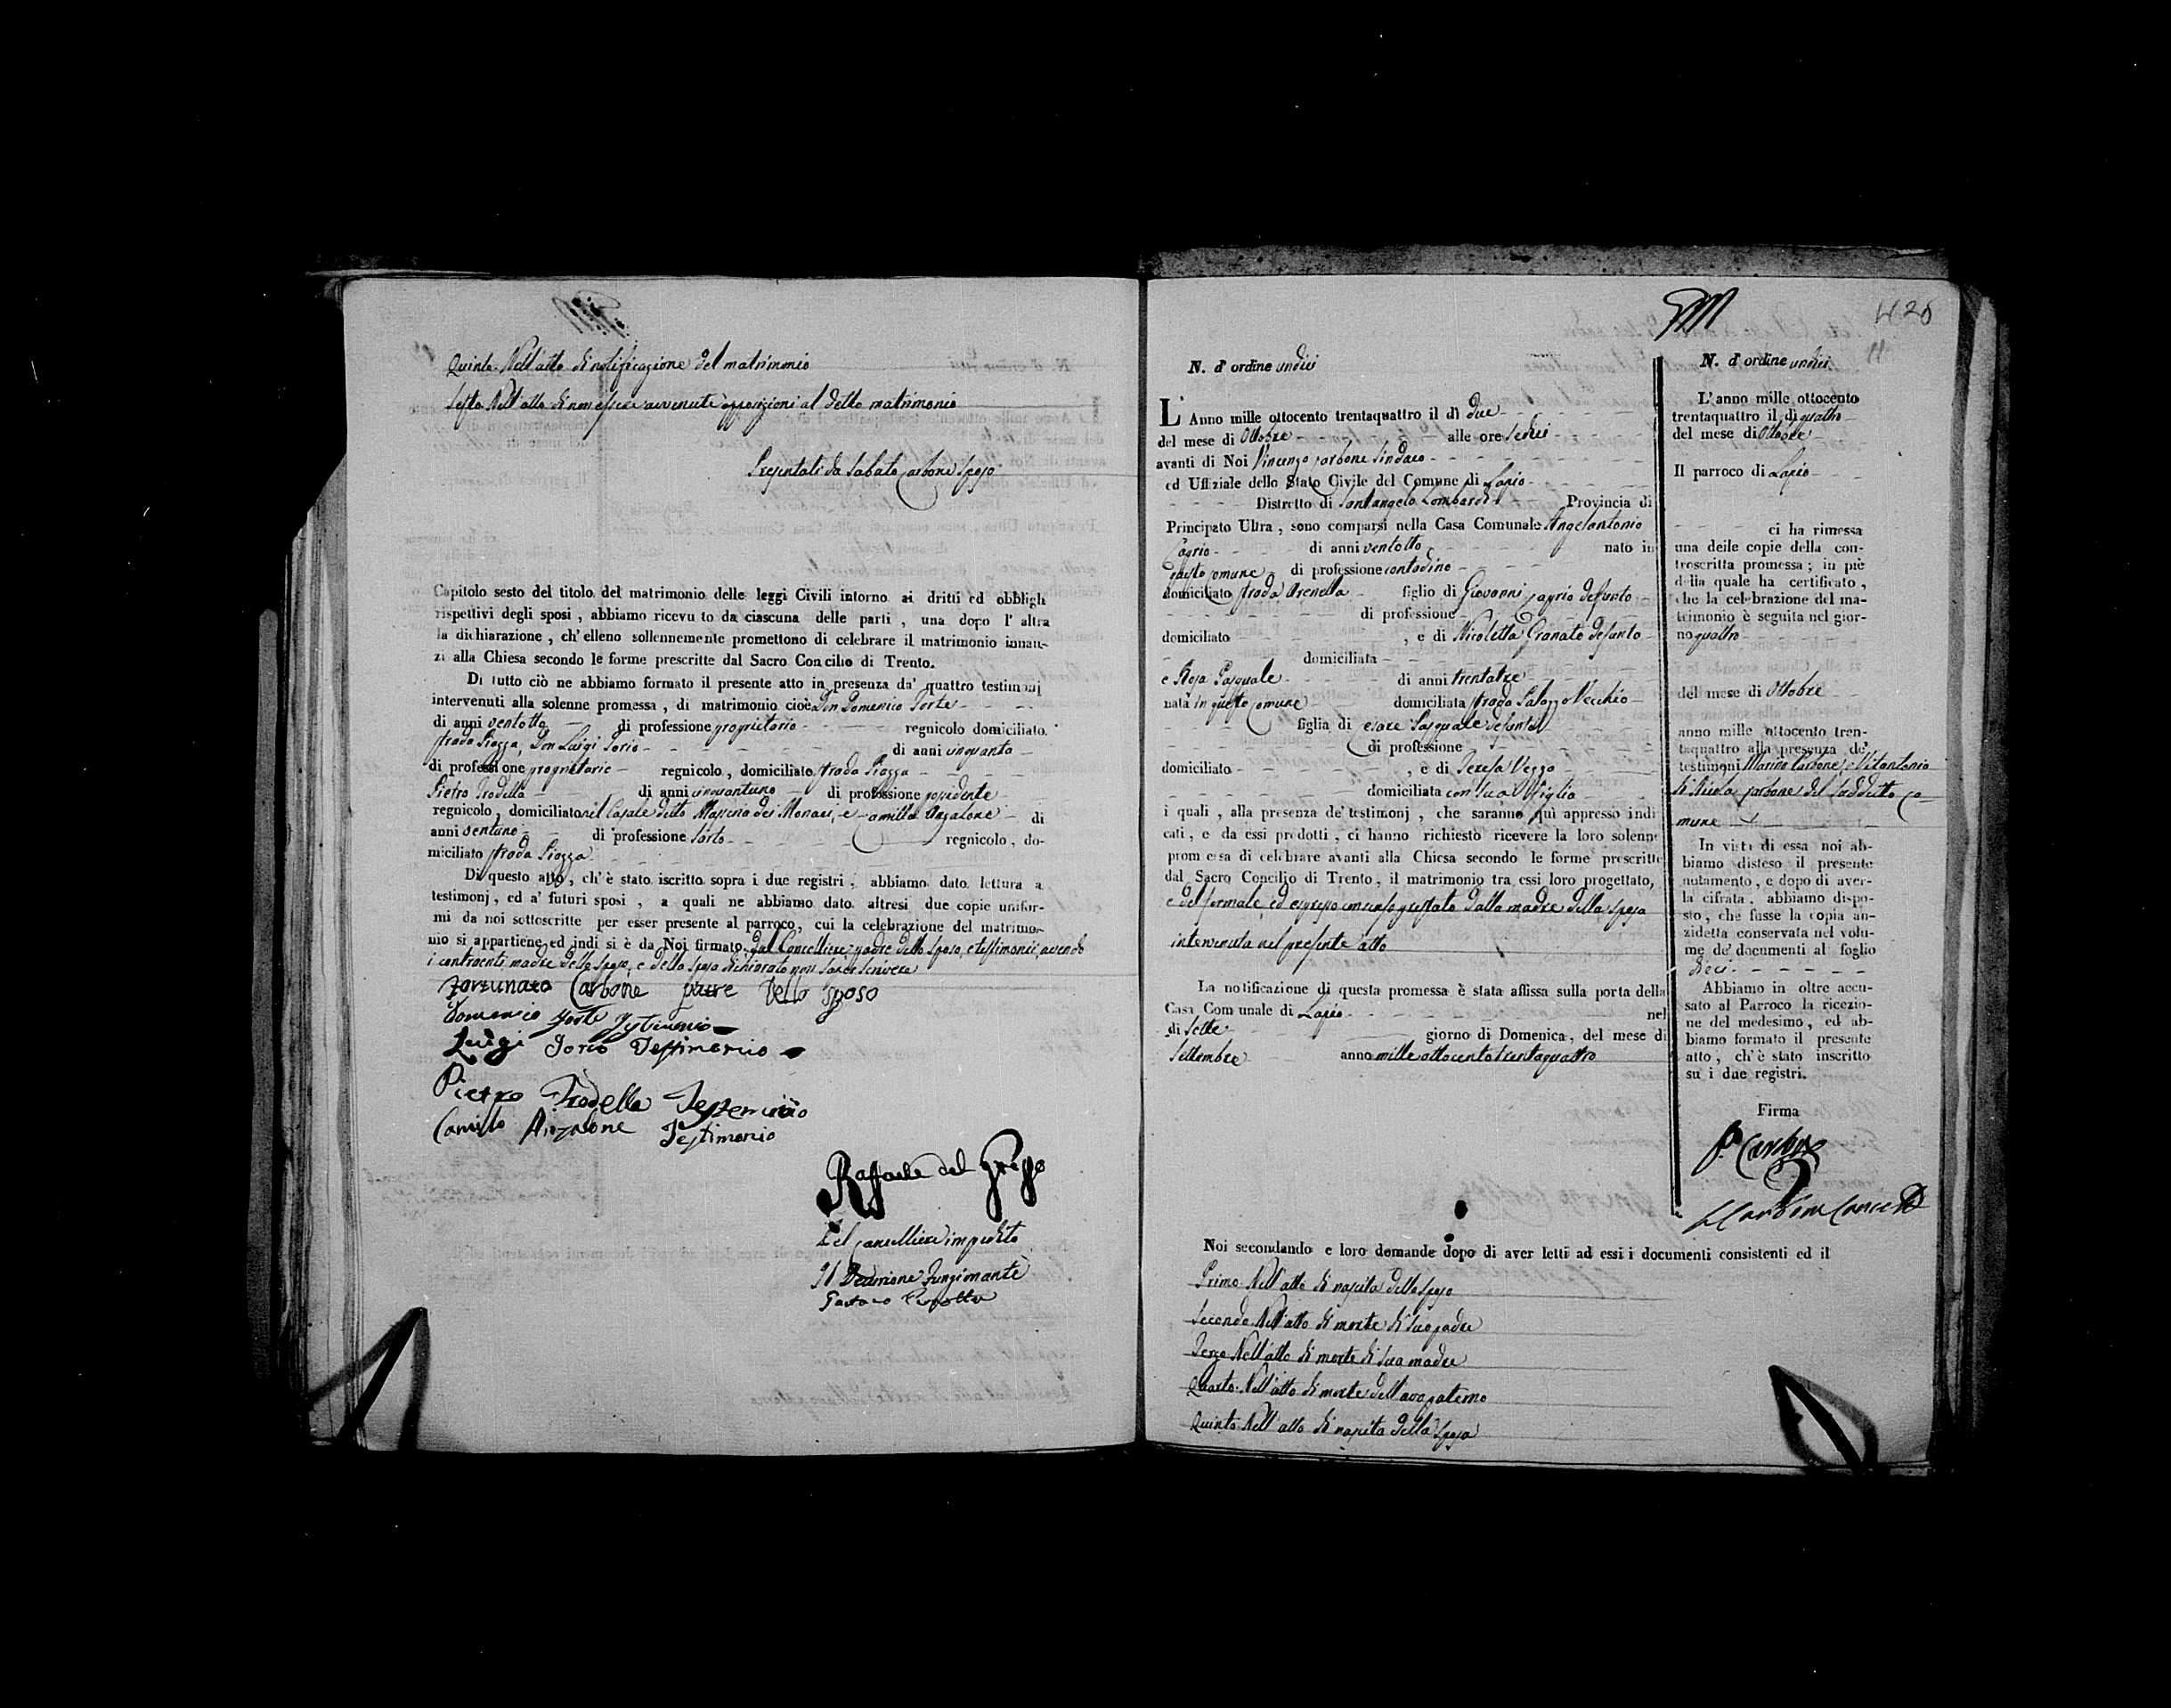 Quinto. Nell'atto di notificazione del matrimonio
Sesto. Nell'atto di non essere avvenute opposizioni al detto matrimonio
Presentati da Sabato Carbone sposo
Capitolo sesto del titolo del matrimonio delle leggi Civili intorno ai dritti ed obbligh
rispettivi degli sposi , abbiamo ricevuto da ciascuna delle parti , una dopo l' altra
la dichiarazione , ch' elleno sollennemente promettono di celebrare il matrimonio innan-
zi alla Chiesa secondo le forme prescritte dal Sacro Concilio di Trento.
Di tutto ciò ne abbiamo formato il presente atto in presenza da' quattro testimonj
intervenuti alla solenne promessa , di matrimonio cioè Don Domenico Forte
di anni ventotto di professione proprietario regnicolo domiciliato
strada Piazza, Don Luigi Iorio di anni cinquanta
di professione proprietario regnicolo , domiciliato strada Piazza
Pietro Frodella di anni cinquantuno di professione possidente
regnicolo , domiciliato nel Casale detto Masseria dei Monaci, e Camillo Anzalone di
anni ventuno di professione Sarto regnicolo , do-
miciliato strada Piazza
Di questo atto , ch' è stato iscritto sopra i due registri , abbiamo dato lettura a
testimonj , ed a' futuri sposi , a quali ne abbiamo dato altresì due copie unifor-
mi da noi sottoscritte per esser presente al parroco , cui la celebrazione del matrimo-
nio si appartiene, ed indi si è da Noi firmato, dal Cancelliere, padre dello sposo, e testimonii, avendo
i contraenti madre dello sposo, e della sposa dichiarato non saper scrivere
Fortunato Carbone padre dello sposo
Domenico Forte Testimonio
Luigi Iorio Testimonio
Pietro Frodella Testimonio
Camillo Anzalone Testimonio
Raffaele del Grosso
Pel Cancelliere impedito
Il Decurione funzionante
Gaetano
420
11
N. d' ordine undici
L' Anno mille ottocento trentaquattro il dì due
del mese di Ottobre alle ore sedici
avanti di Noi Vincenzo Carbone Sindaco
ed Uffiziale dello Stato Civile del Comune di Lapio
Distretto di Santangelo Lombardi Provincia di
Principato Ultra , sono comparsi nella Casa Comunale Angelantonio
Caprio di anni ventotto nato in
questo Comune di professione contadino
domiciliato strada Arenella figlio di Giovanni Caprio defunto
di professione
domiciliato , e di Nicoletta Granato defunta
domiciliata
e Rosa Pasquale di anni trentatre
nata in questo Comune domiciliata strada Palazzo Vecchio
figlia di Cesare Pasquale defunto
di professione
domiciliato , e di Teresa Vezzo
domiciliata con sua figlia
i quali , alla presenza de' testimonj , che saranno qui appresso indi
cati , e da essi prodotti , ci hanno richiesto ricevere la loro solenne
promessa di celebrare avanti alla Chiesa secondo le forme prescritte
dal Sacro Concilio di Trento , il matrimonio tra essi loro progettato,
e del formale, ed espresso consenso prestato dalla madre della sposa
intervenuta nel presente atto
La notificazione di questa promessa è stata affissa sulla porta della
Casa Comunale di Lapio nel
di sette giorno di Domenica , del mese di
Settembre anno mille ottocento trentaquattro
Noi secondando e loro domande dopo di aver letti ad essi i documenti consistenti ed il
Primo. Nell'atto di nascita dello sposo
Secondo. Nell'atto di morte di suo padre
Terzo. Nell'atto di morte di sua madre
Quarto. Nell'atto di morte dell'avo paterno
Quinto. Nell'atto di nascita della sposa
N. d' ordine undici
L' anno mille ottocento
trentaquattro il dì quattro
del mese di Ottobre
Il parroco di Lapio
ci ha rimessa
una delle copie della con-
troscritta promessa ; in piè
della quale ha certificato ,
che la celebrazione del ma-
trimonio è seguita nel gior-
no quattro
del mese di Ottobre
anno mille ottocento tren-
taquattro alla presenza de'
testimonj Marino Carbone, e Vitantonio
di Nicola Carbone del suddetto Co-
mune
In vista di essa noi ab-
biamo disteso il presente
notamento , e dopo di aver-
la cifrata , abbiamo dispo-
sto , che fusse la copia an-
zidetta conservata nel volu-
me de' documenti al foglio
dieci
Abbiamo in oltre accu-
sato al Parroco la ricezio-
ne del medesimo , ed ab-
biamo formato il presente
atto , ch' è stato inscritto
su i due registri.
Firma
Carbone